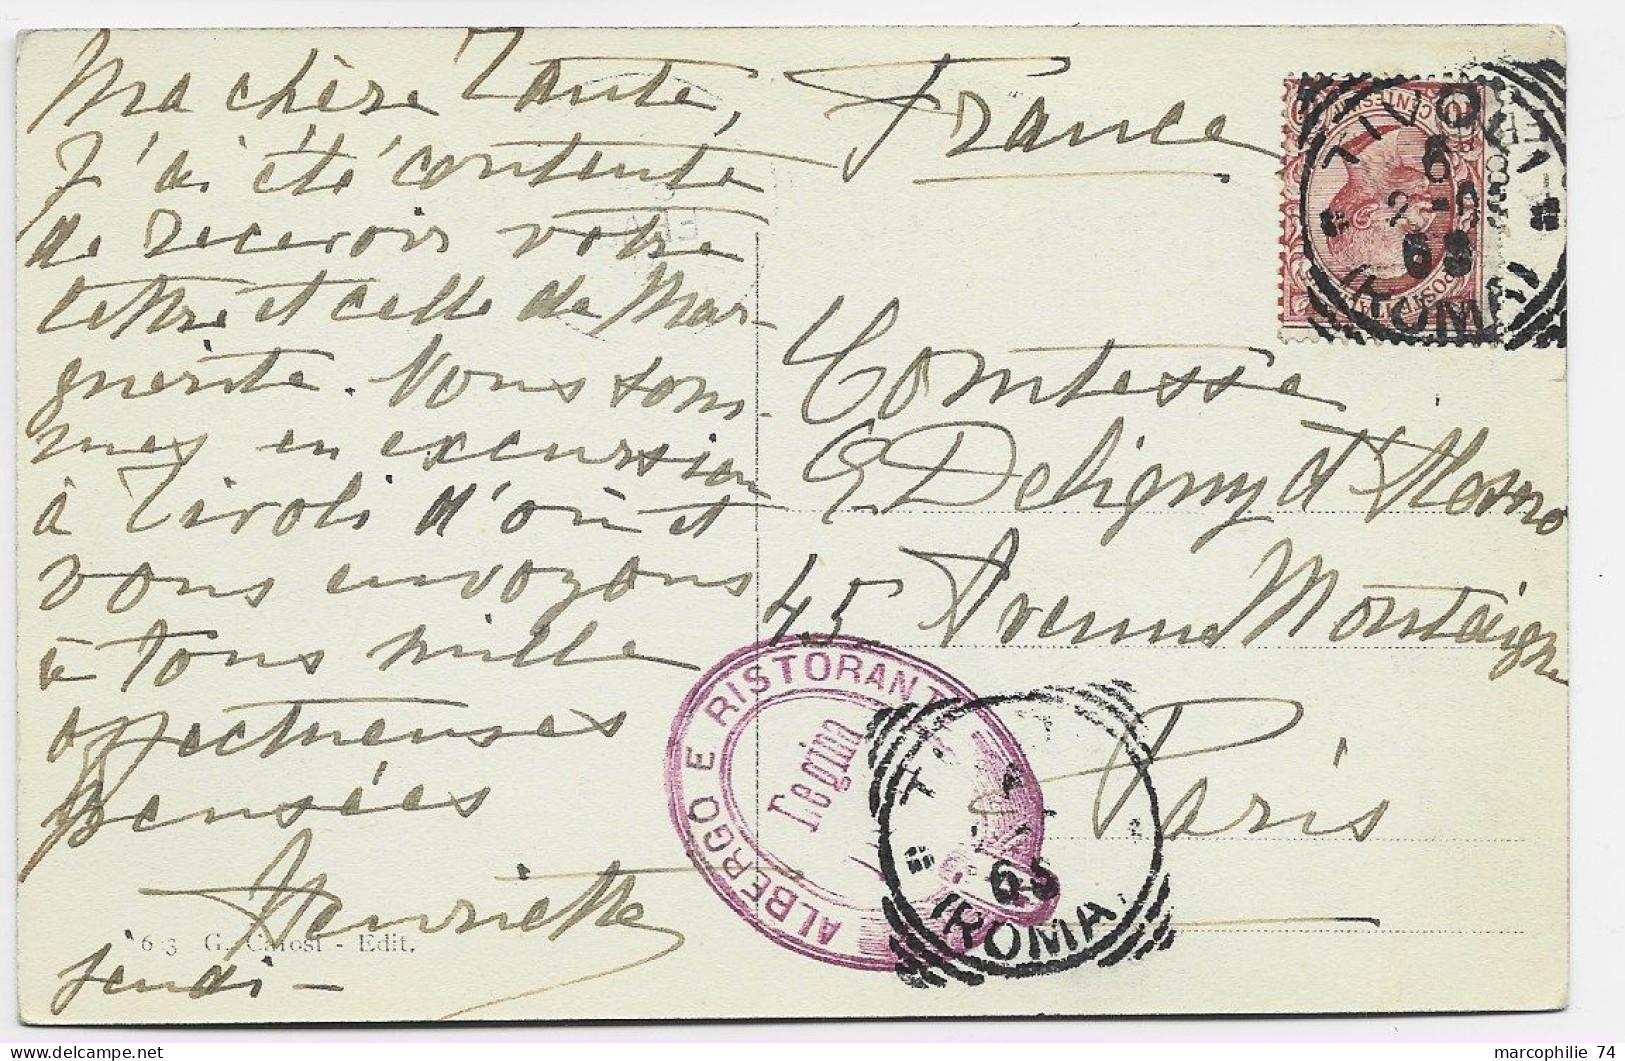 Ma chère Tante,
J'ai été contente
de recevoir votre
lettre et celle de Mar-
guerite. Nous som-
mes en excursion
à Tivoli d'où et
vous envoyons
à tous mille
affectueuses
pensées
Henriette
Jeudi -
613 G. Caiosi - Edit.
France
TIVOLI
6
2-
(ROMA)
Comtesse
E. Deligny d'Alosno
45 Avenue Montaigne
Paris
ALBERGO E RISTORANTE
Regina
(ROMA)
marcophilie 74